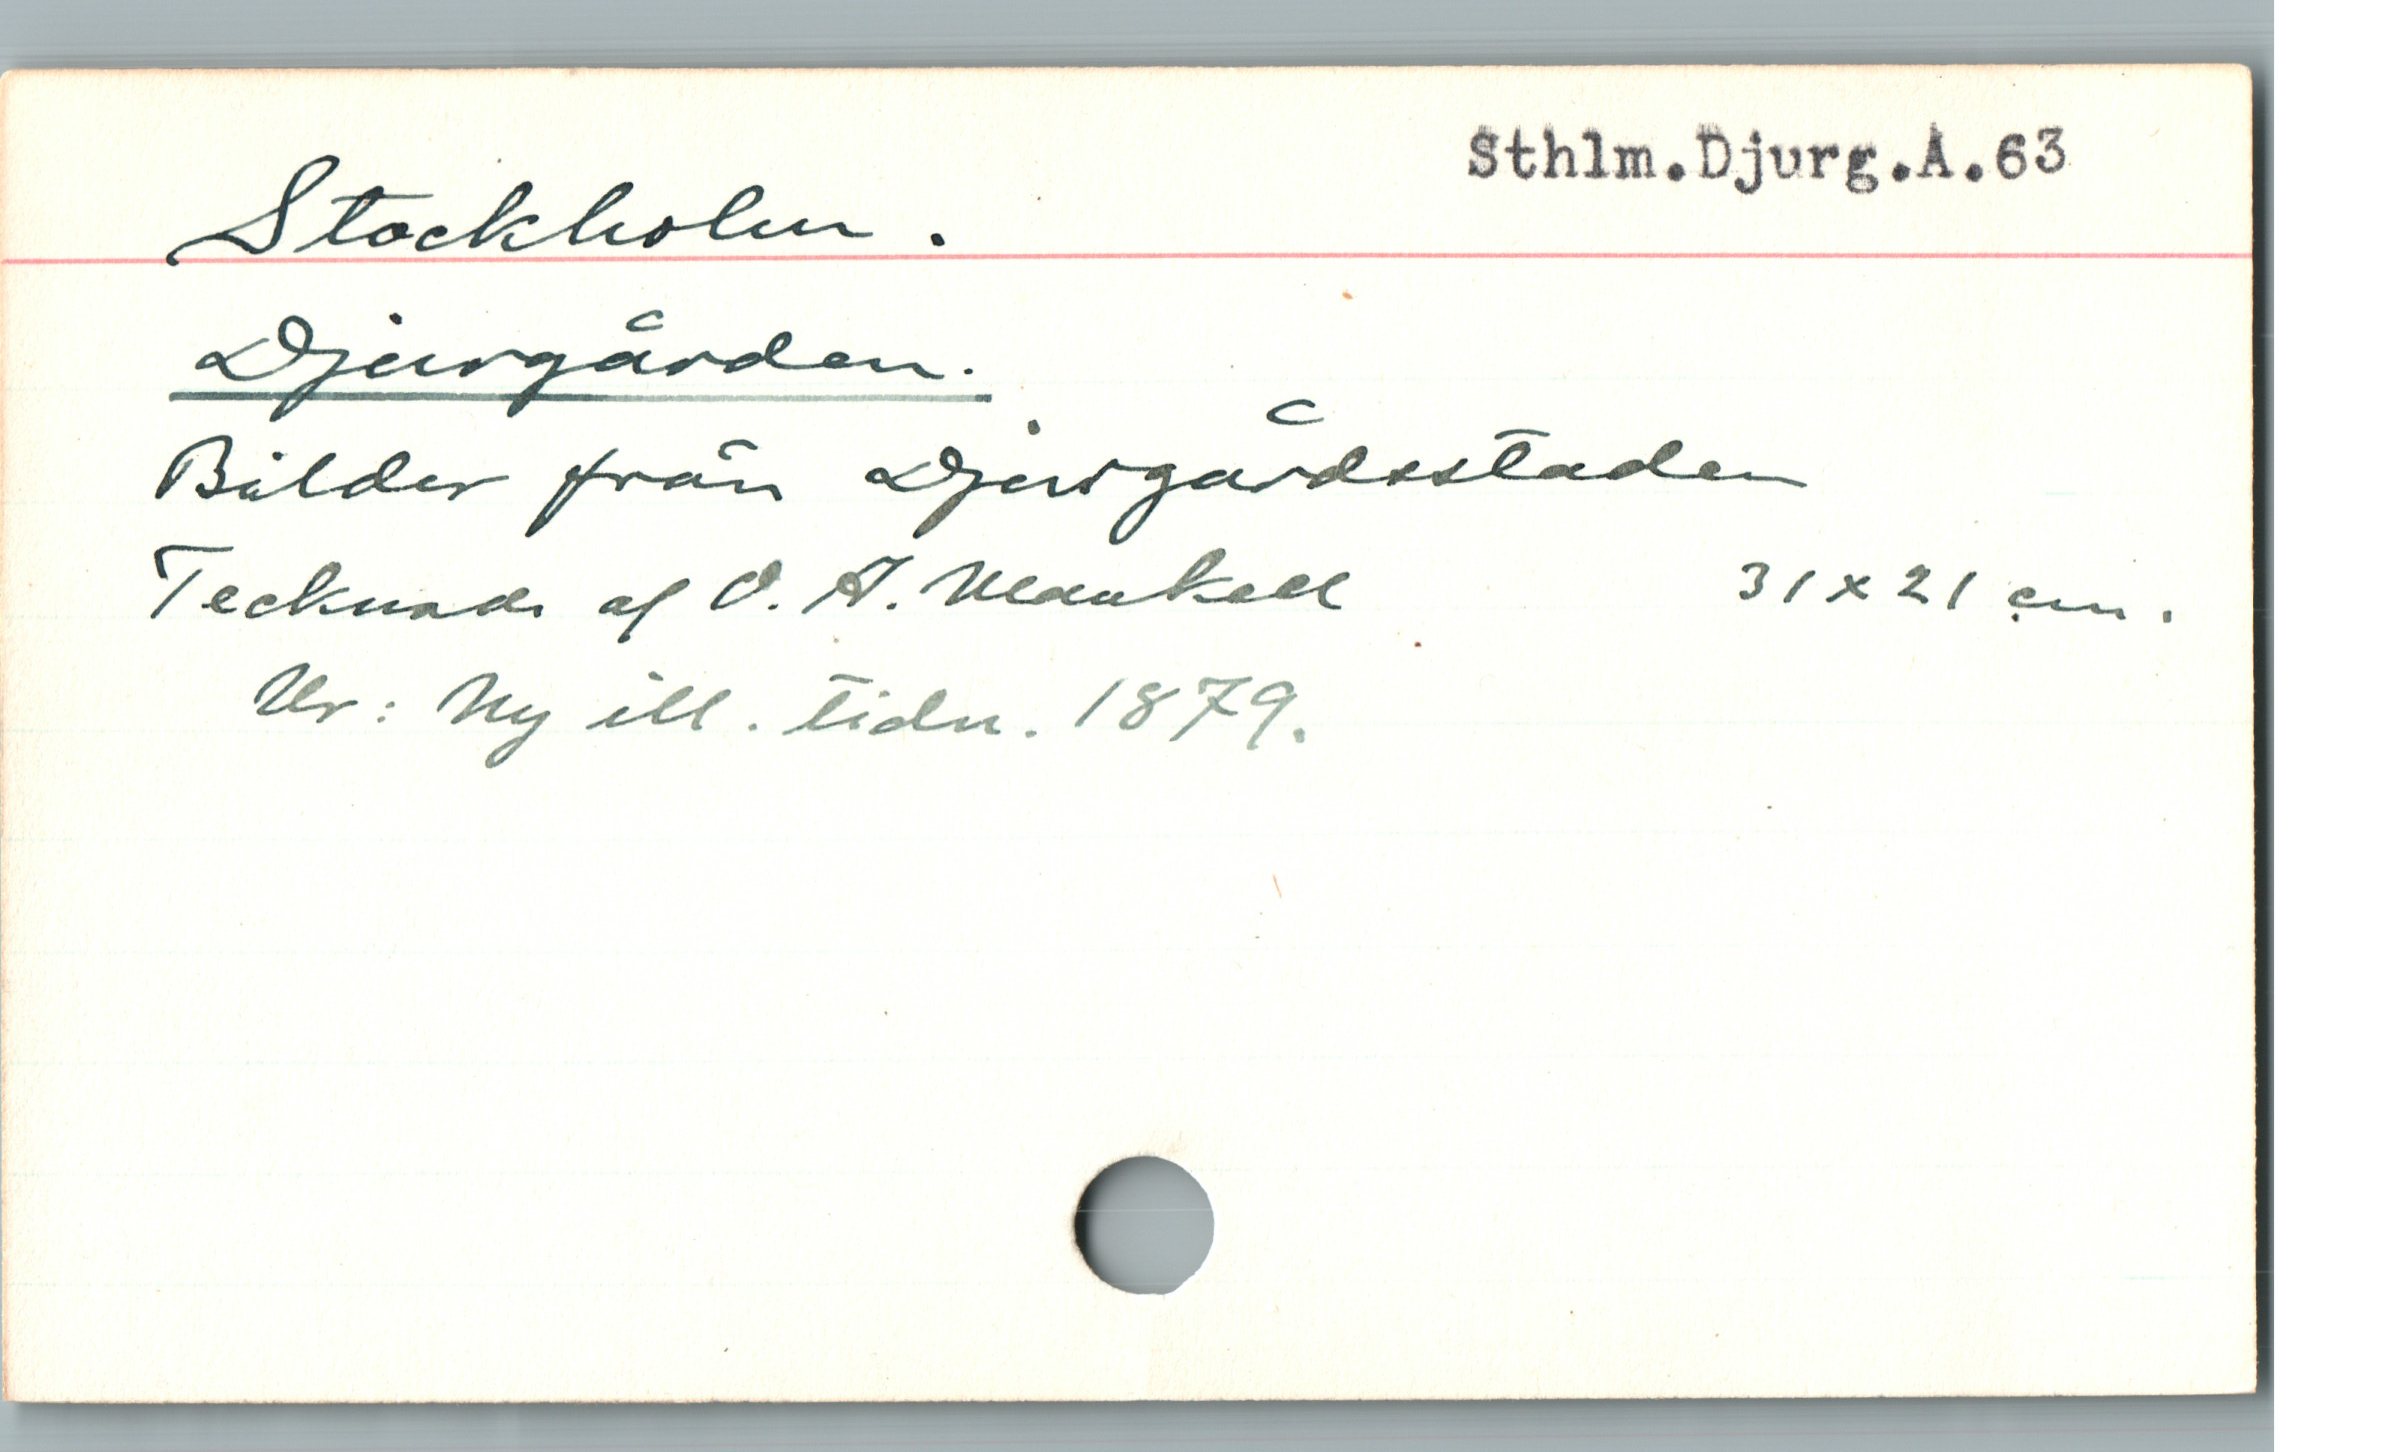 Sthlm.Djurg.A.63
Stockholm.
Djurgården.
Bilder från Djurgårdsstaden
Tecknade af O. A. Mankell 31 x 21 cm.
Ur: Ny ill. tidn. 1879.